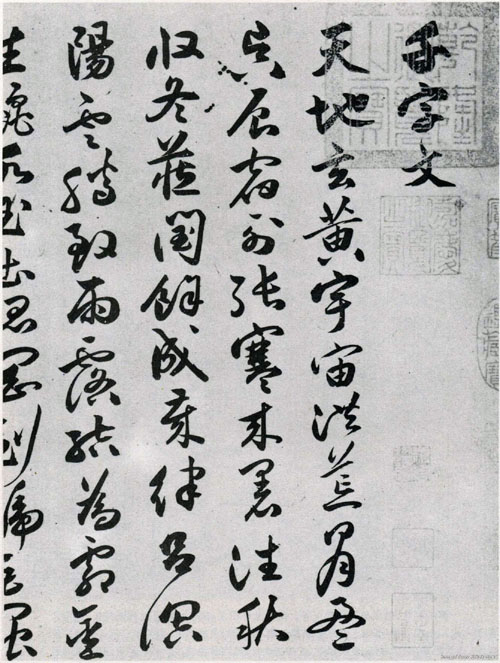 千字文
天地玄黃宇宙洪荒日月盈
昃辰宿列張寒來暑往秋
收冬藏閏餘成歲律呂調
陽雲騰致雨露結為霜金
生麗水玉出崑崗劍號巨闕